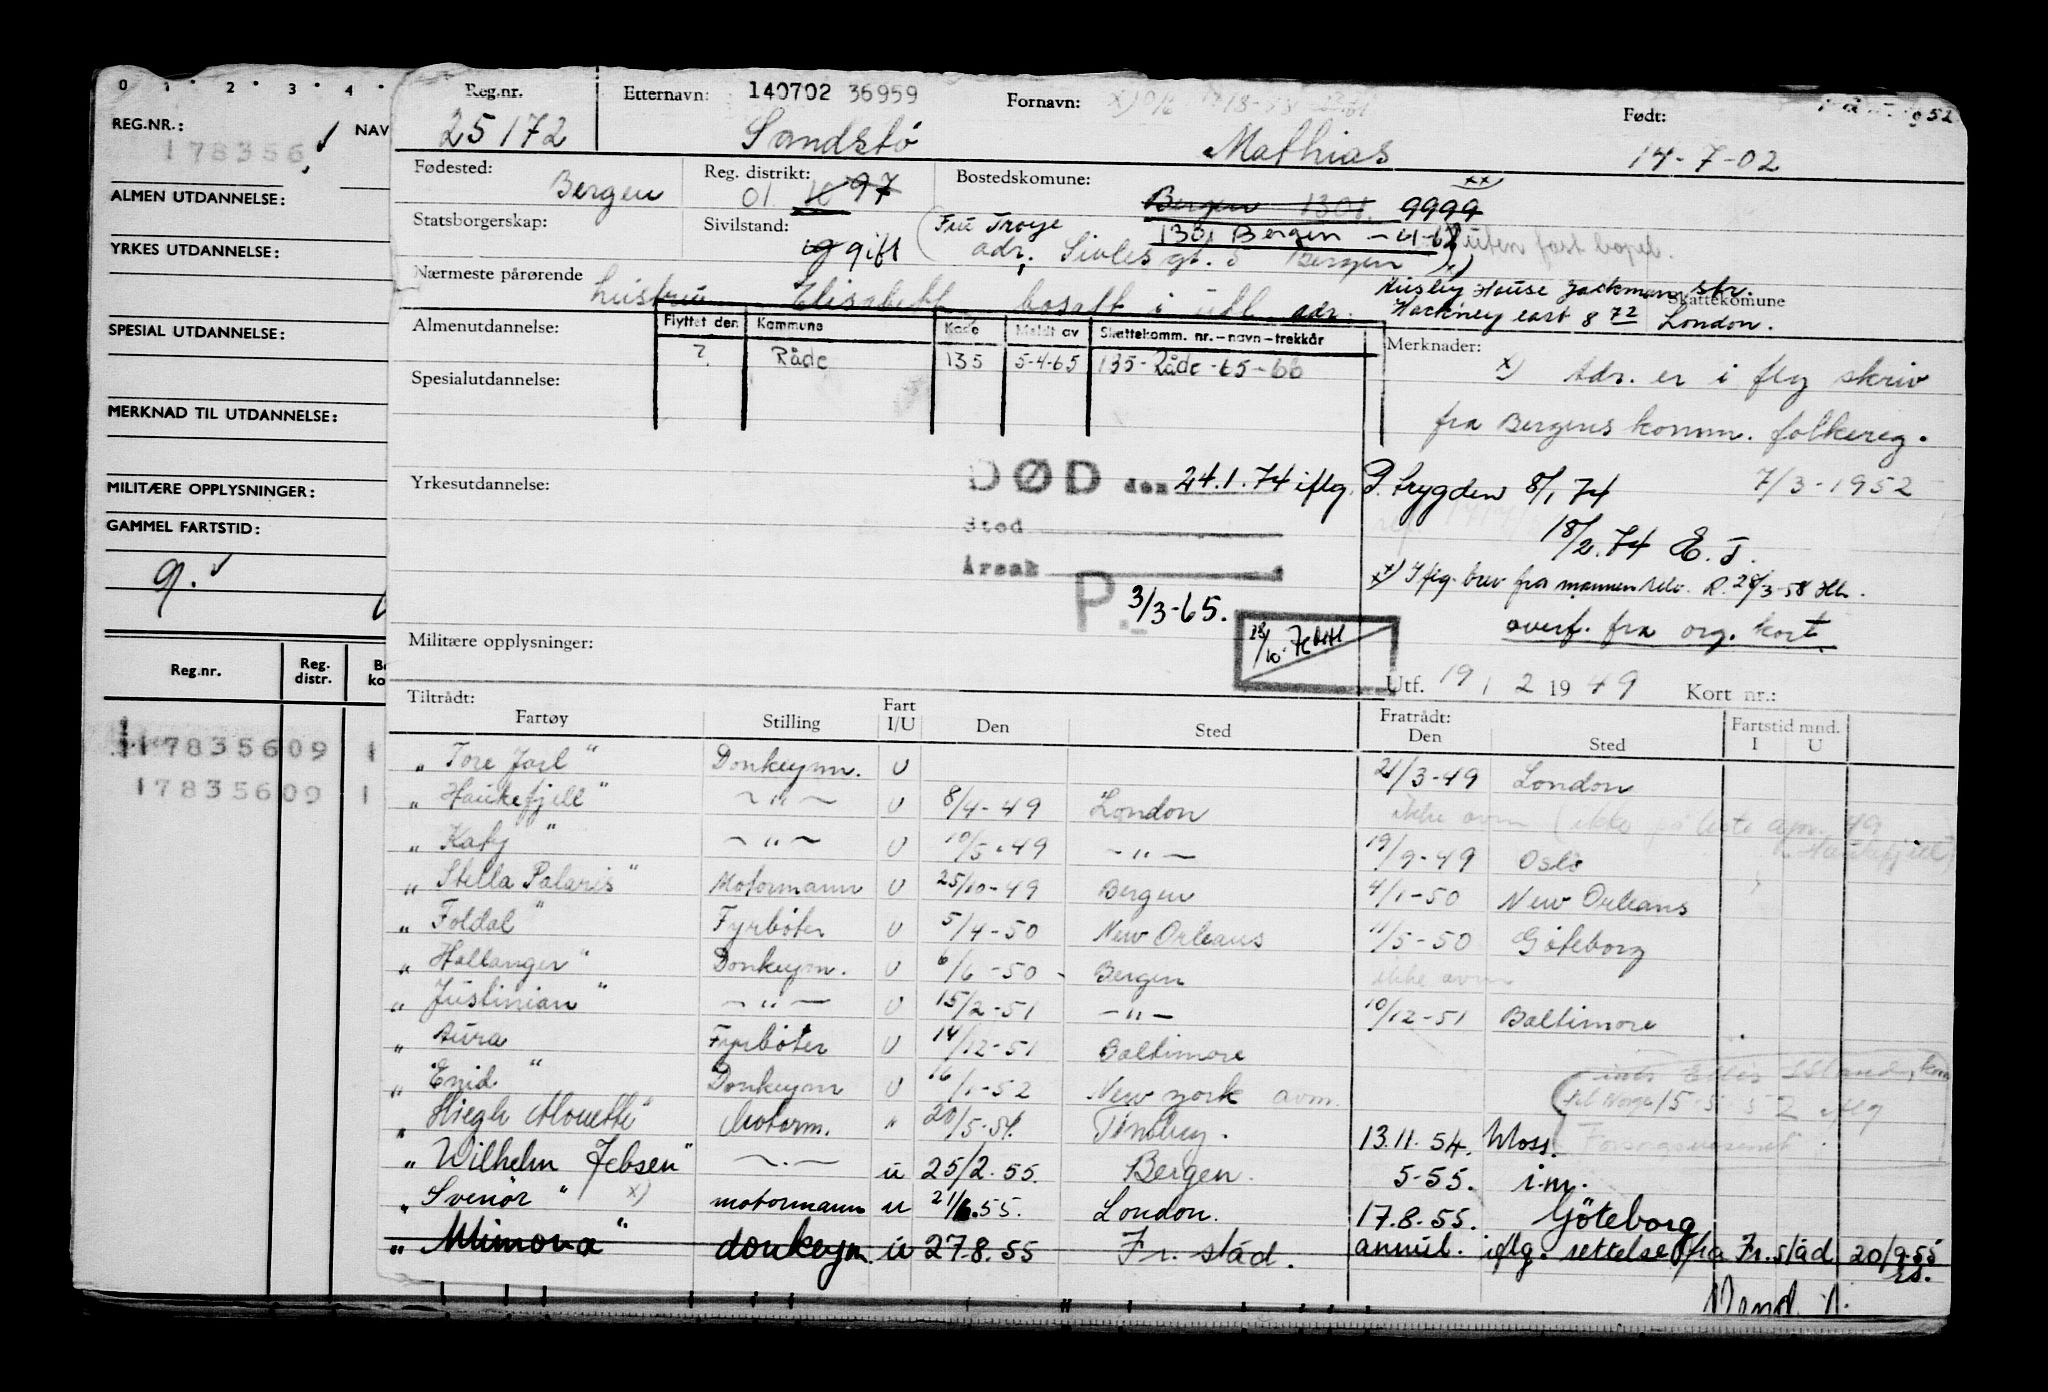 0 1 2 3 4
REG.NR.:
NAV
178356
ALMEN UTDANNELSE:
YRKES UTDANNELSE:
SPESIAL UTDANNELSE:
MERKNAD TIL UTDANNELSE:
MILITÆRE OPPLYSNINGER:
GAMMEL FARTSTID:
9.
Reg.nr. Reg. distr.
17835609 1
17835609 1
Reg.nr. 25172
Etternavn: 140702 36959
Sandstø
Fornavn:
Mathias
Født:
14-7-02
Fødested: Bergen
Reg. distrikt: 01 10 97
Bostedskomune: Bergen 1301 9999
xx)
Statsborgerskap:
Sivilstand: ug gift
Fru Troye 1301 Bergen - 4-62 uten fast bopel.
adr. Sivles gt. 5 Bergen x)
Nærmeste pårørende hustru Elisabeth bosatt i utl. adr.
House Jackman str.
Skattekomune
Hackney east 8 72 London.
Almenutdannelse:
Flyttet den Kommune Kode Meldt av Skattekomm. nr.-navn-trekkår
? Råde 135 5-4-65 135-Råde-65-66
Spesialutdannelse:
Merknader:
x) Adr. er i flg skriv
fra Bergens komm. folkereg.
7/3-1952
Yrkesutdannelse:
DØD den 24.1.74 iflg. P.trygden 8/1 74
18/2.74 E.J.
Sted
Årsak
P. 3/3-65.
xx) Iflg. brev fra mannen R. 28/3-58
overf. fra org. kort
Militære opplysninger:
Utf. 19/2 1949 Kort nr.:
Tiltrådt:
Fartøy Stilling Fart I/U Den Sted
Fratrådt:
Den Sted
Fartstid mnd.
I U
"Tore Jarl" Donkeymn. U 21/3-49 London
"Haukefjell" -"- U 8/4-49 London ikke avm (ikke på liste apr. 49 Haukefjell)
"Katy" -"- U 10/5-49 -"- 19/9-49 Oslo
"Stella Polaris" Motormann U 25/10-49 Bergen 4/1-50 New Orleans
"Foldal" Fyrbøter U 5/4-50 New Orleans 11/5-50 Göteborg
"Hallanger" Donkeym. U 6/6-50 - Bergen ikke avm
"Justinian" -"- U 15/2-51 -"- 10/12-51 Baltimore
" Aura Fyrbøter U 14/12-51 Baltimore
"Enid" Donkeym U 16/1-52 New York avm.
Ellis Island, kom
til Norge 15-5-52 iflg
"Høegh Mouette" Motorm. " 20/5-54. Tønsberg. 13.11.54. Moss.
"Wilhelm Jebsen" -"- u 25/2.55. Bergen. 5-55. i.m.
"Svenör" x) motormann u 21/6.55. London. 17.8.55. Göteborg
"Mimona" donkeym. u 27.8.55 Fr. stad. annul. iflg. rettelse fra Fr.stad 20/9.55